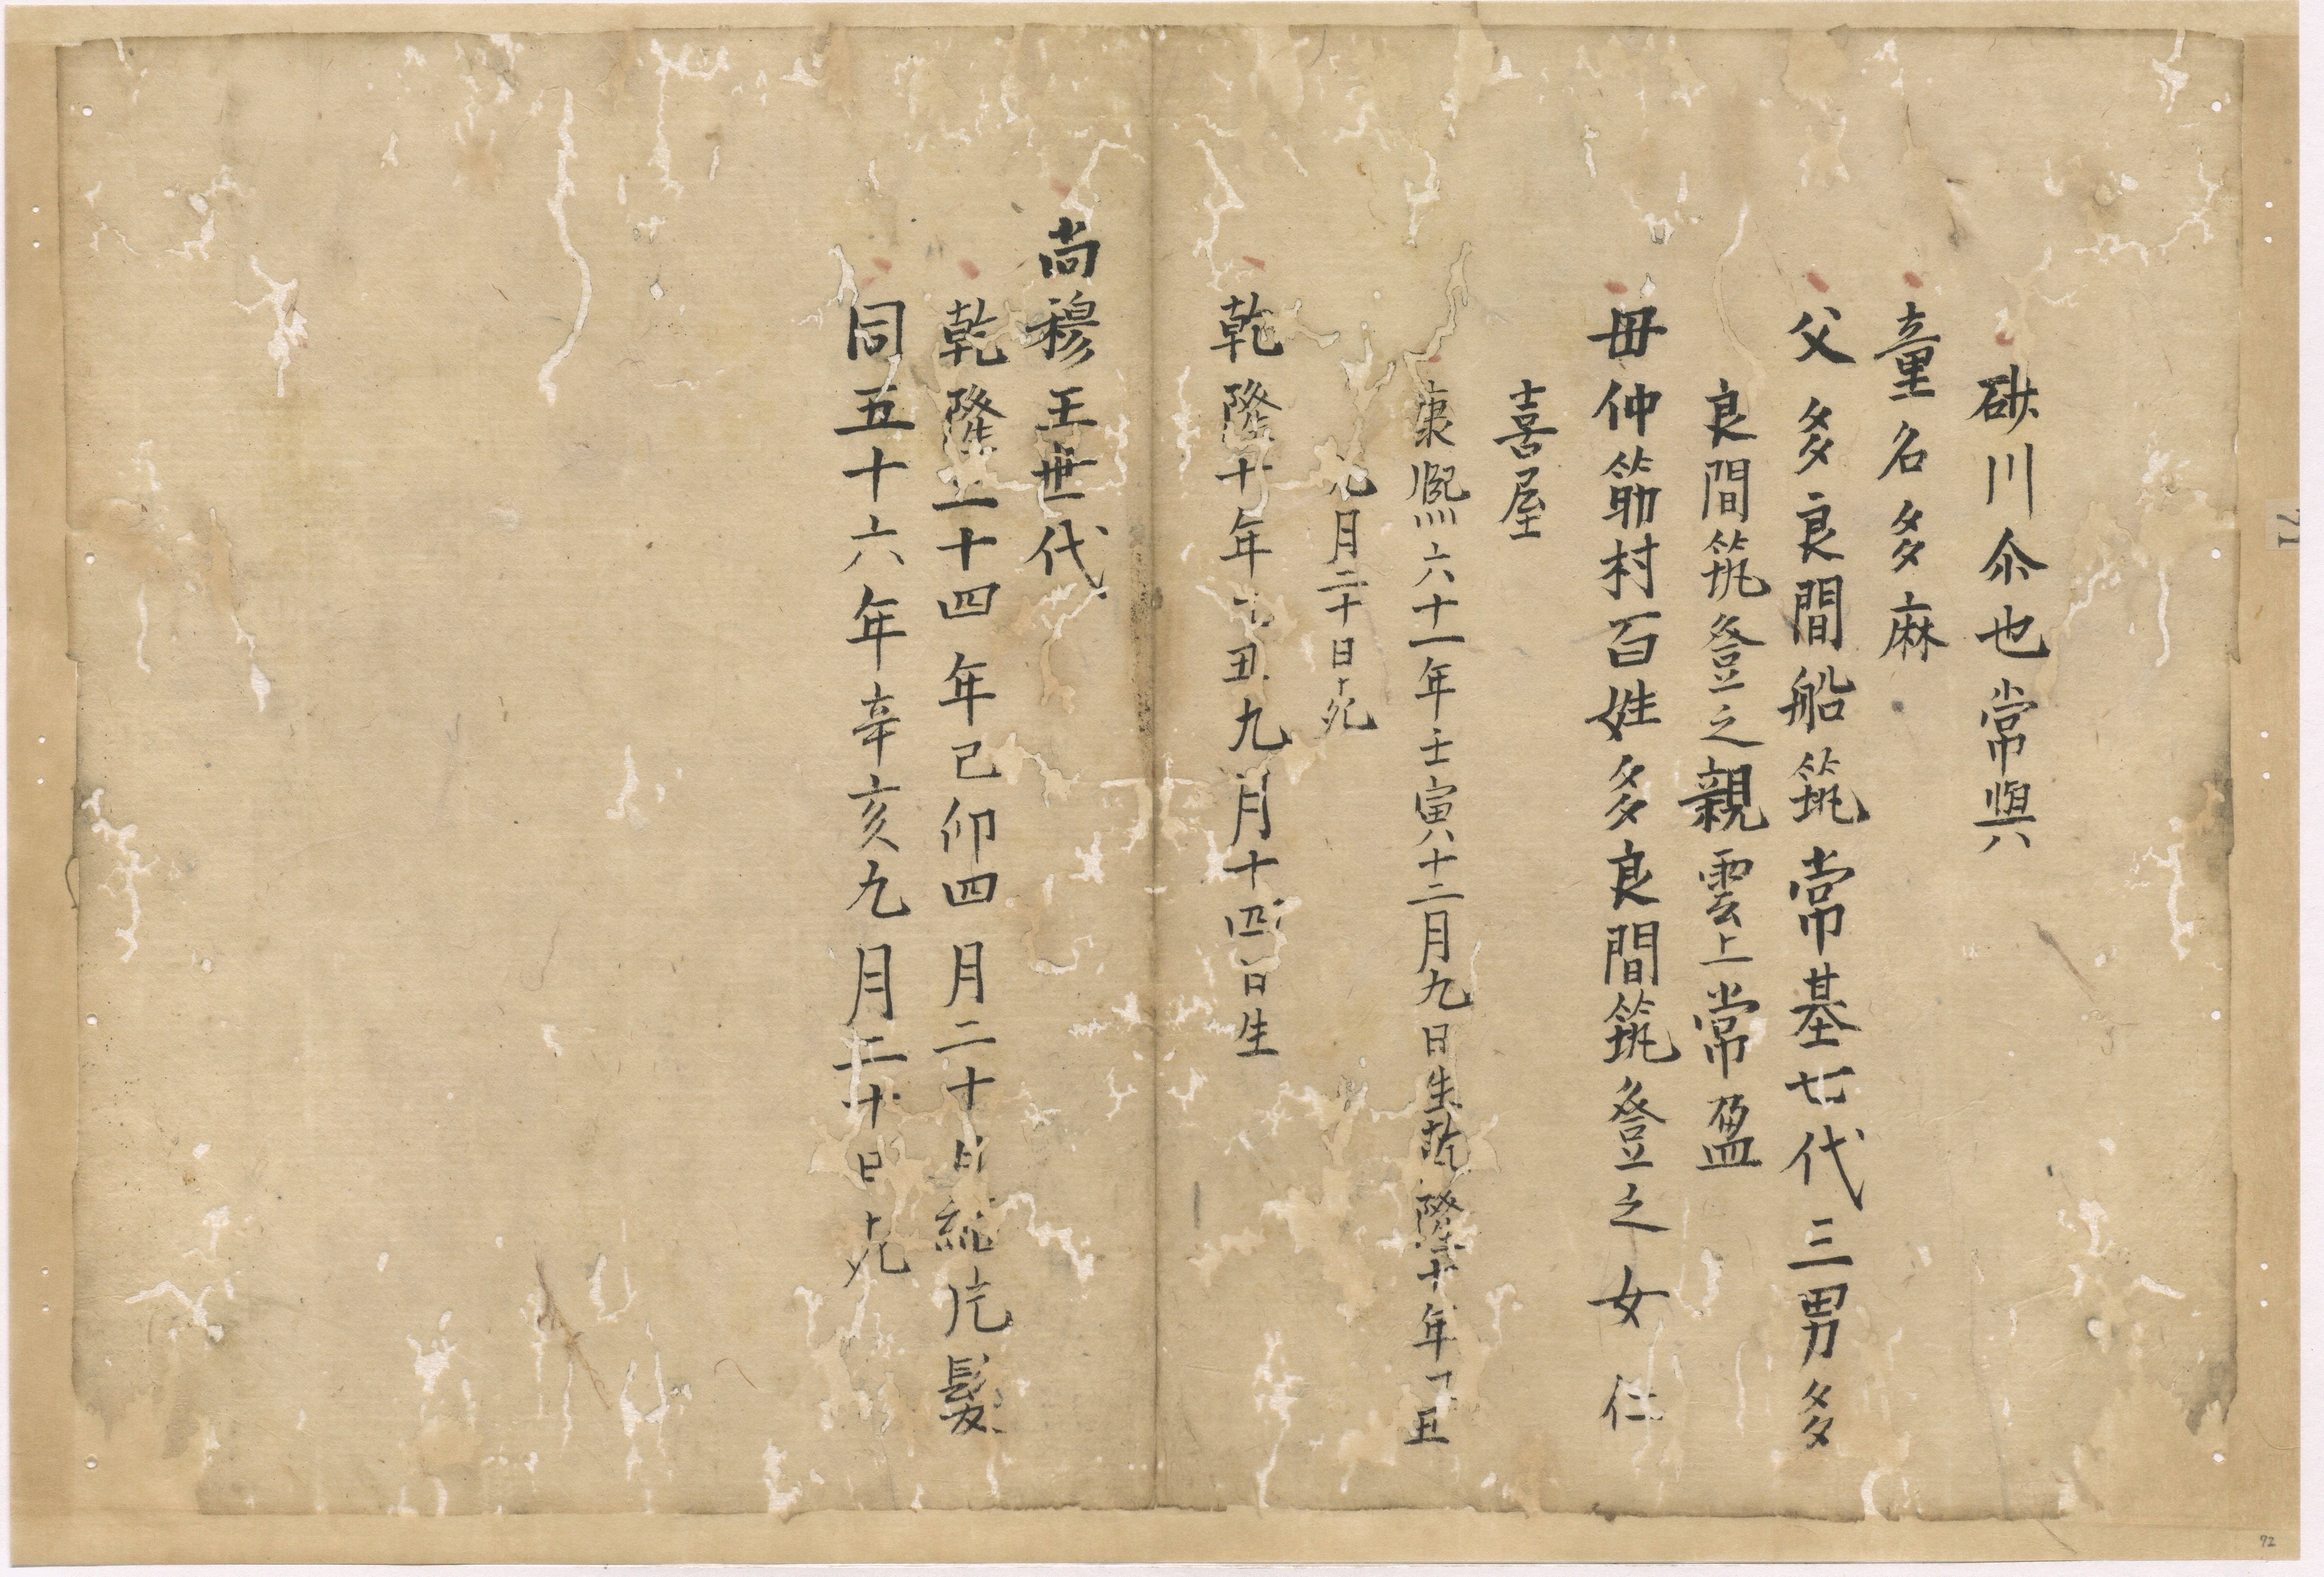 硴川尒也常與
童名多麻
父多良間船筑常基七代三男多
良間筑登之親雲上常盈
母仲筋村百姓多良間筑登之女仁
喜屋
康熈六十一年壬寅十二月九日生乾隆十年丑
月二十日死
乾隆十年丑九月十四日生
尚穆王世代
乾隆二十四年己卯四月二十日結片髮
同五十六年辛亥九月二十日死
71
72